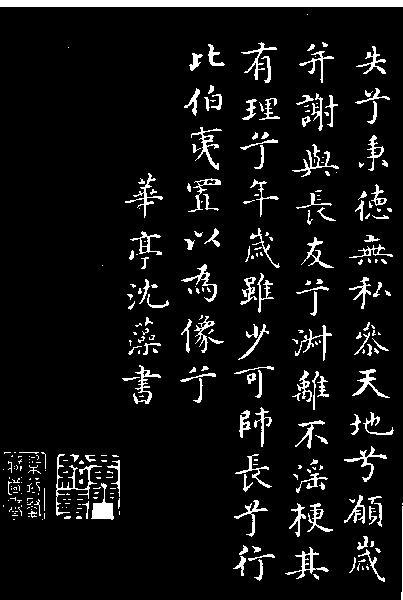 失兮秉德無私參天地兮願歲
并謝與長友兮淑離不淫梗其
有理兮年歲雖少可師長兮行
比伯夷置以為像兮
華亭沈藻書
黃門給事